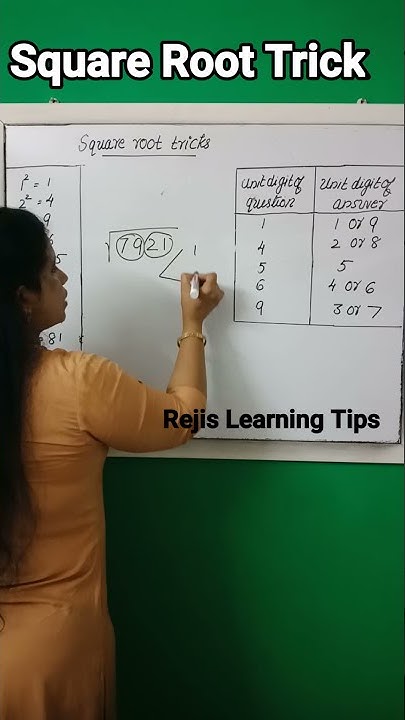 Square Root Trick
Square root tricks
1² = 1
2² = 4
9
5
= 81
√7921
1
Unit digit of question
Unit digit of answer
1 1 or 9
4 2 or 8
5 5
6 4 or 6
9 3 or 7
Rejis Learning Tips